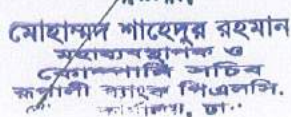 মোহাম্মদ শাহেদুর রহমান
মহাব্যবস্থাপক ও
কোম্পানি সচিব
রূপালী ব্যাংক পিএলসি.
কার্যালয়, ঢাকা